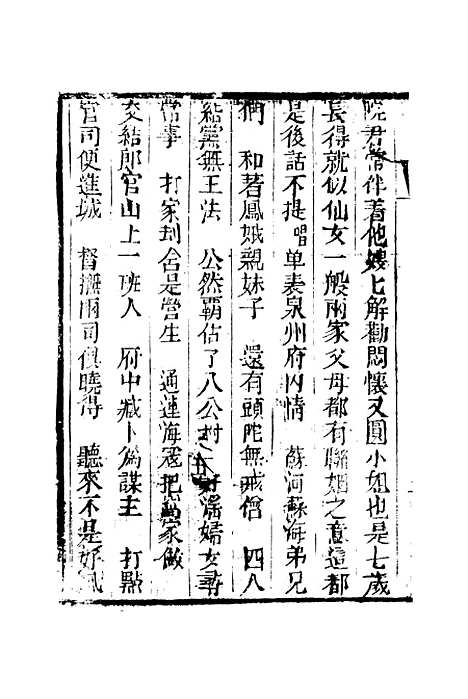 晚君常伴着他嫂匕解勸悶懷又圓小姐也是七歲
長得就似仙女一般兩家父母都有聯姻之意這都
是後話不提唱单表泉州府内情 蘇河蘇海弟兄
們 和着鳳娥親妹子 還有頭陀無戒僧 四人
結黨無王法 公然覇佔了八公村 婦女尋
常事 打家刦舍是營生 通連海冦把萬家做
交結郎官山上一班人 府中臧卜為謀主 打點
官司便進城 督撫兩司俱曉得 聽來不是好風